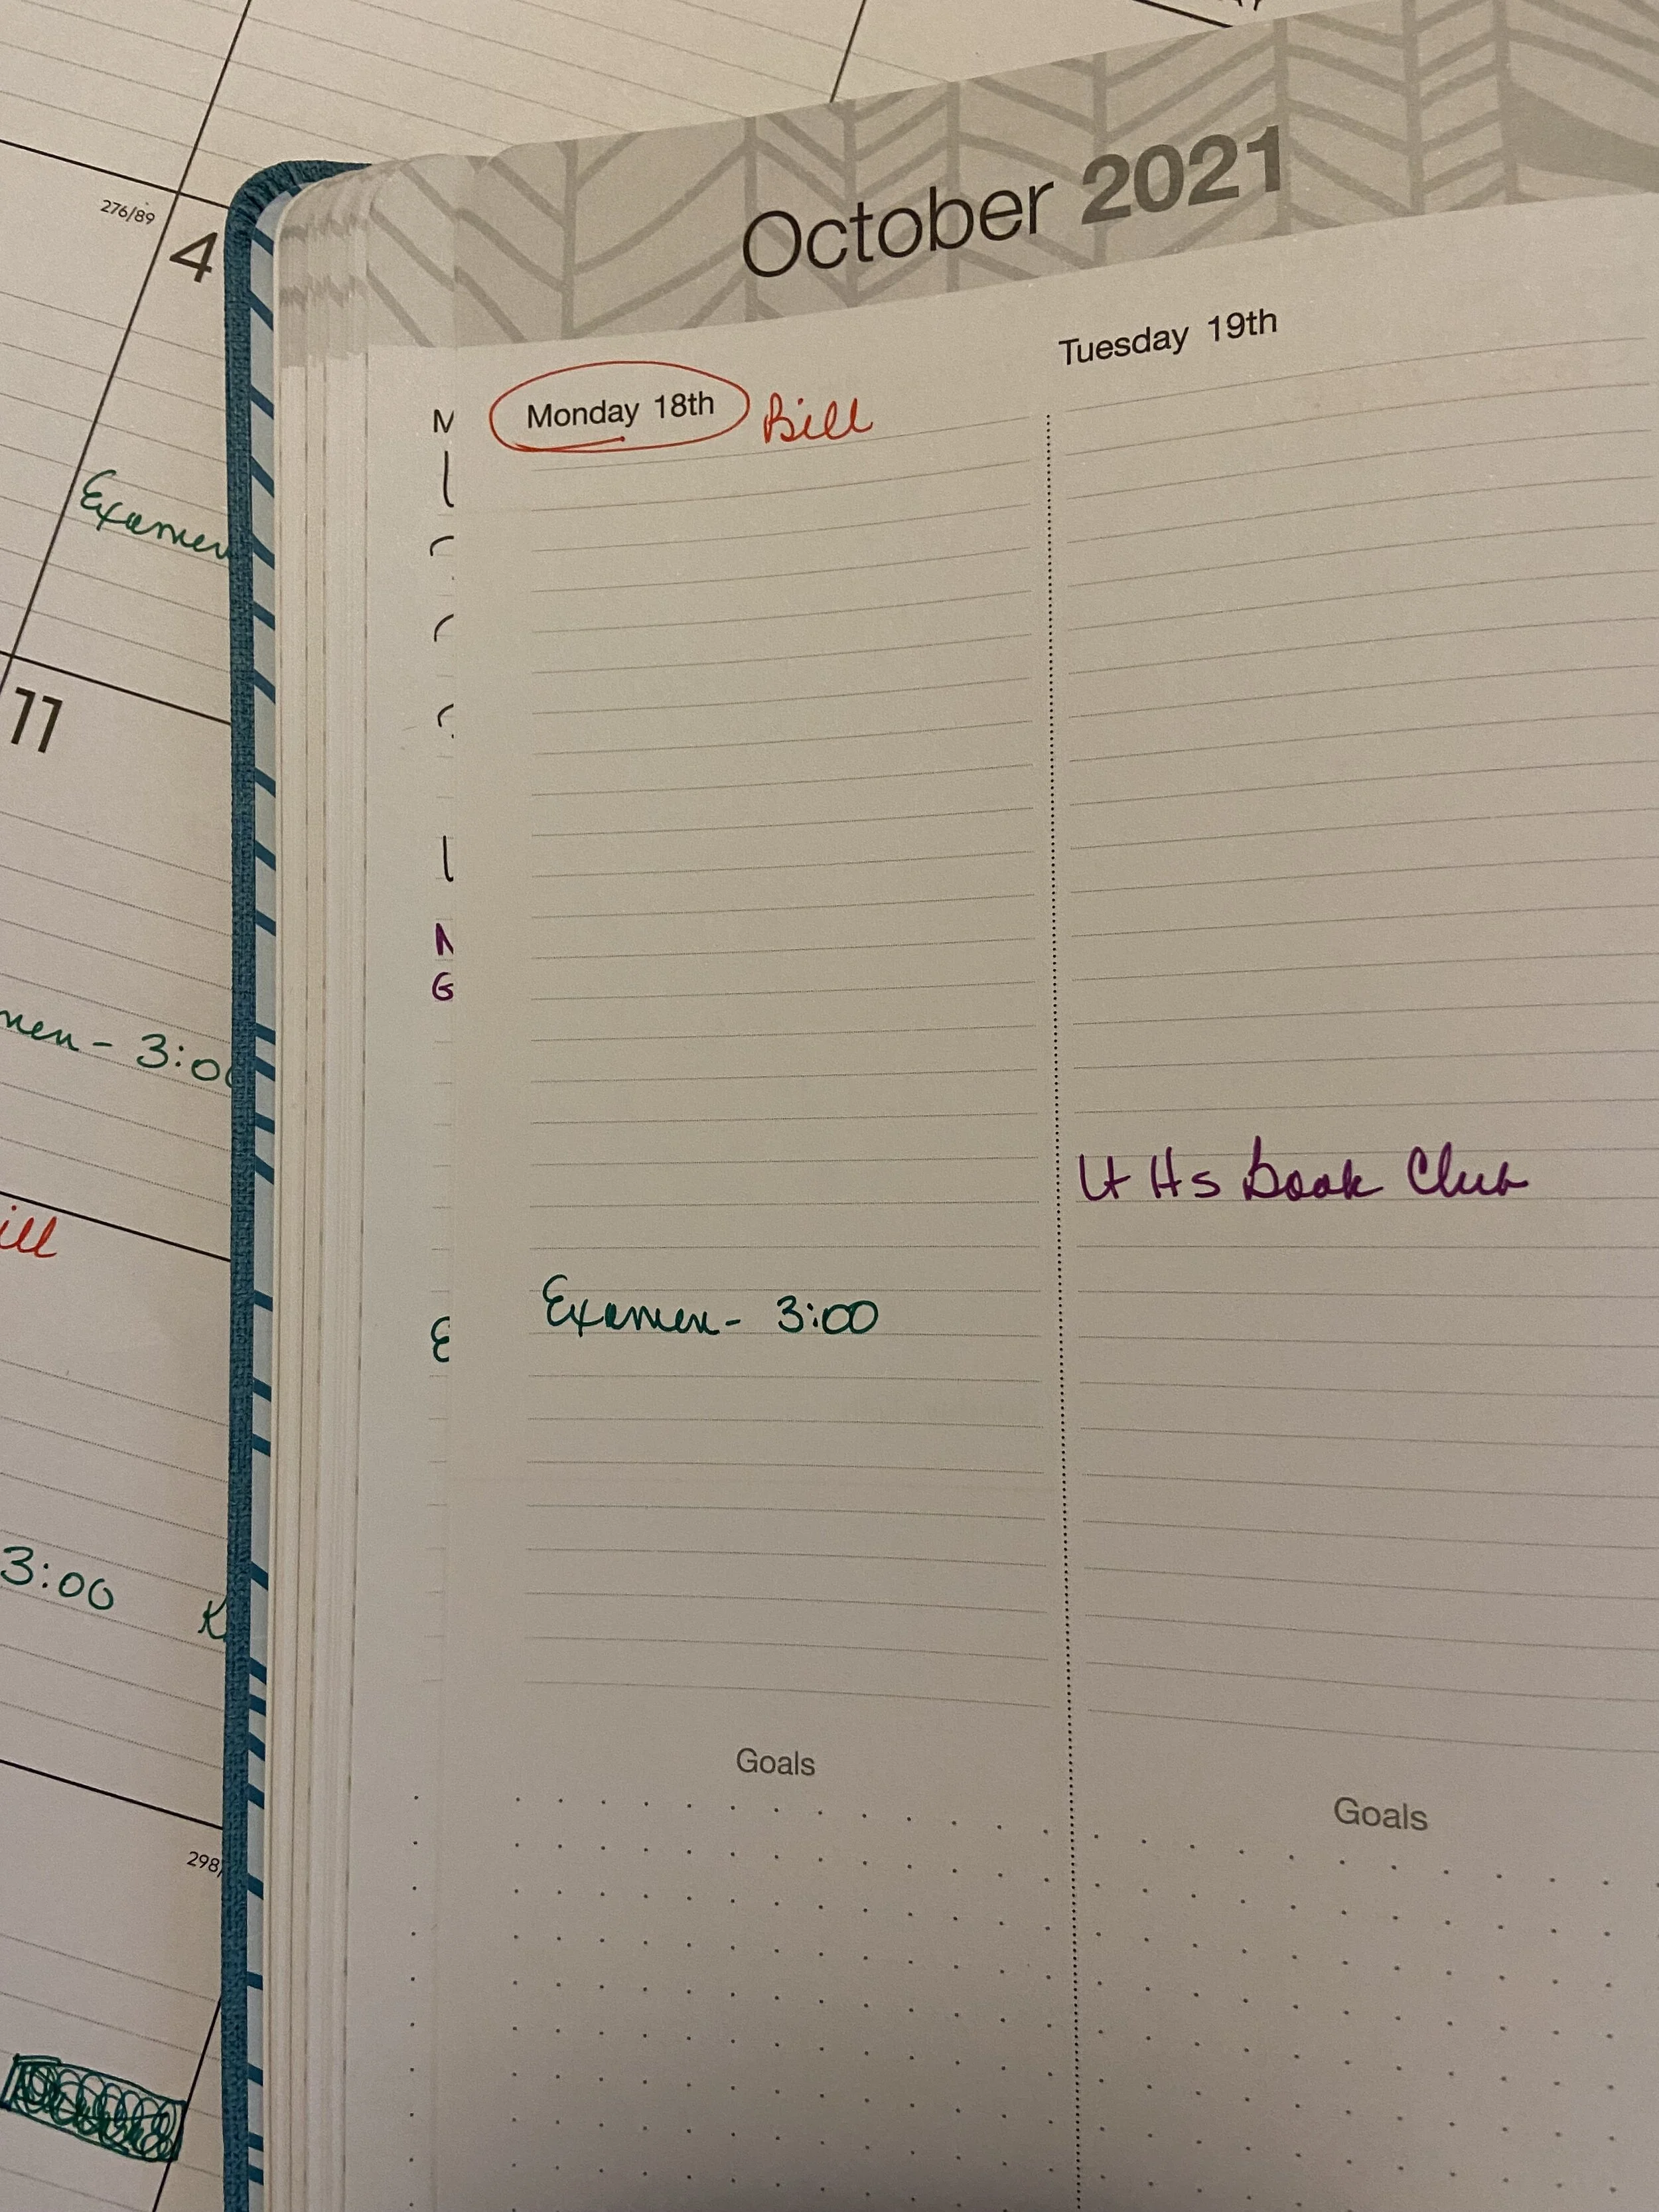 276/89
4
Examen
11
men - 3:00
ill
3:00 K
298
October 2021
Monday 18th Bill
Tuesday 19th
M
N
G
E
Lt Hs Book Club
Examen - 3:00
Goals
Goals